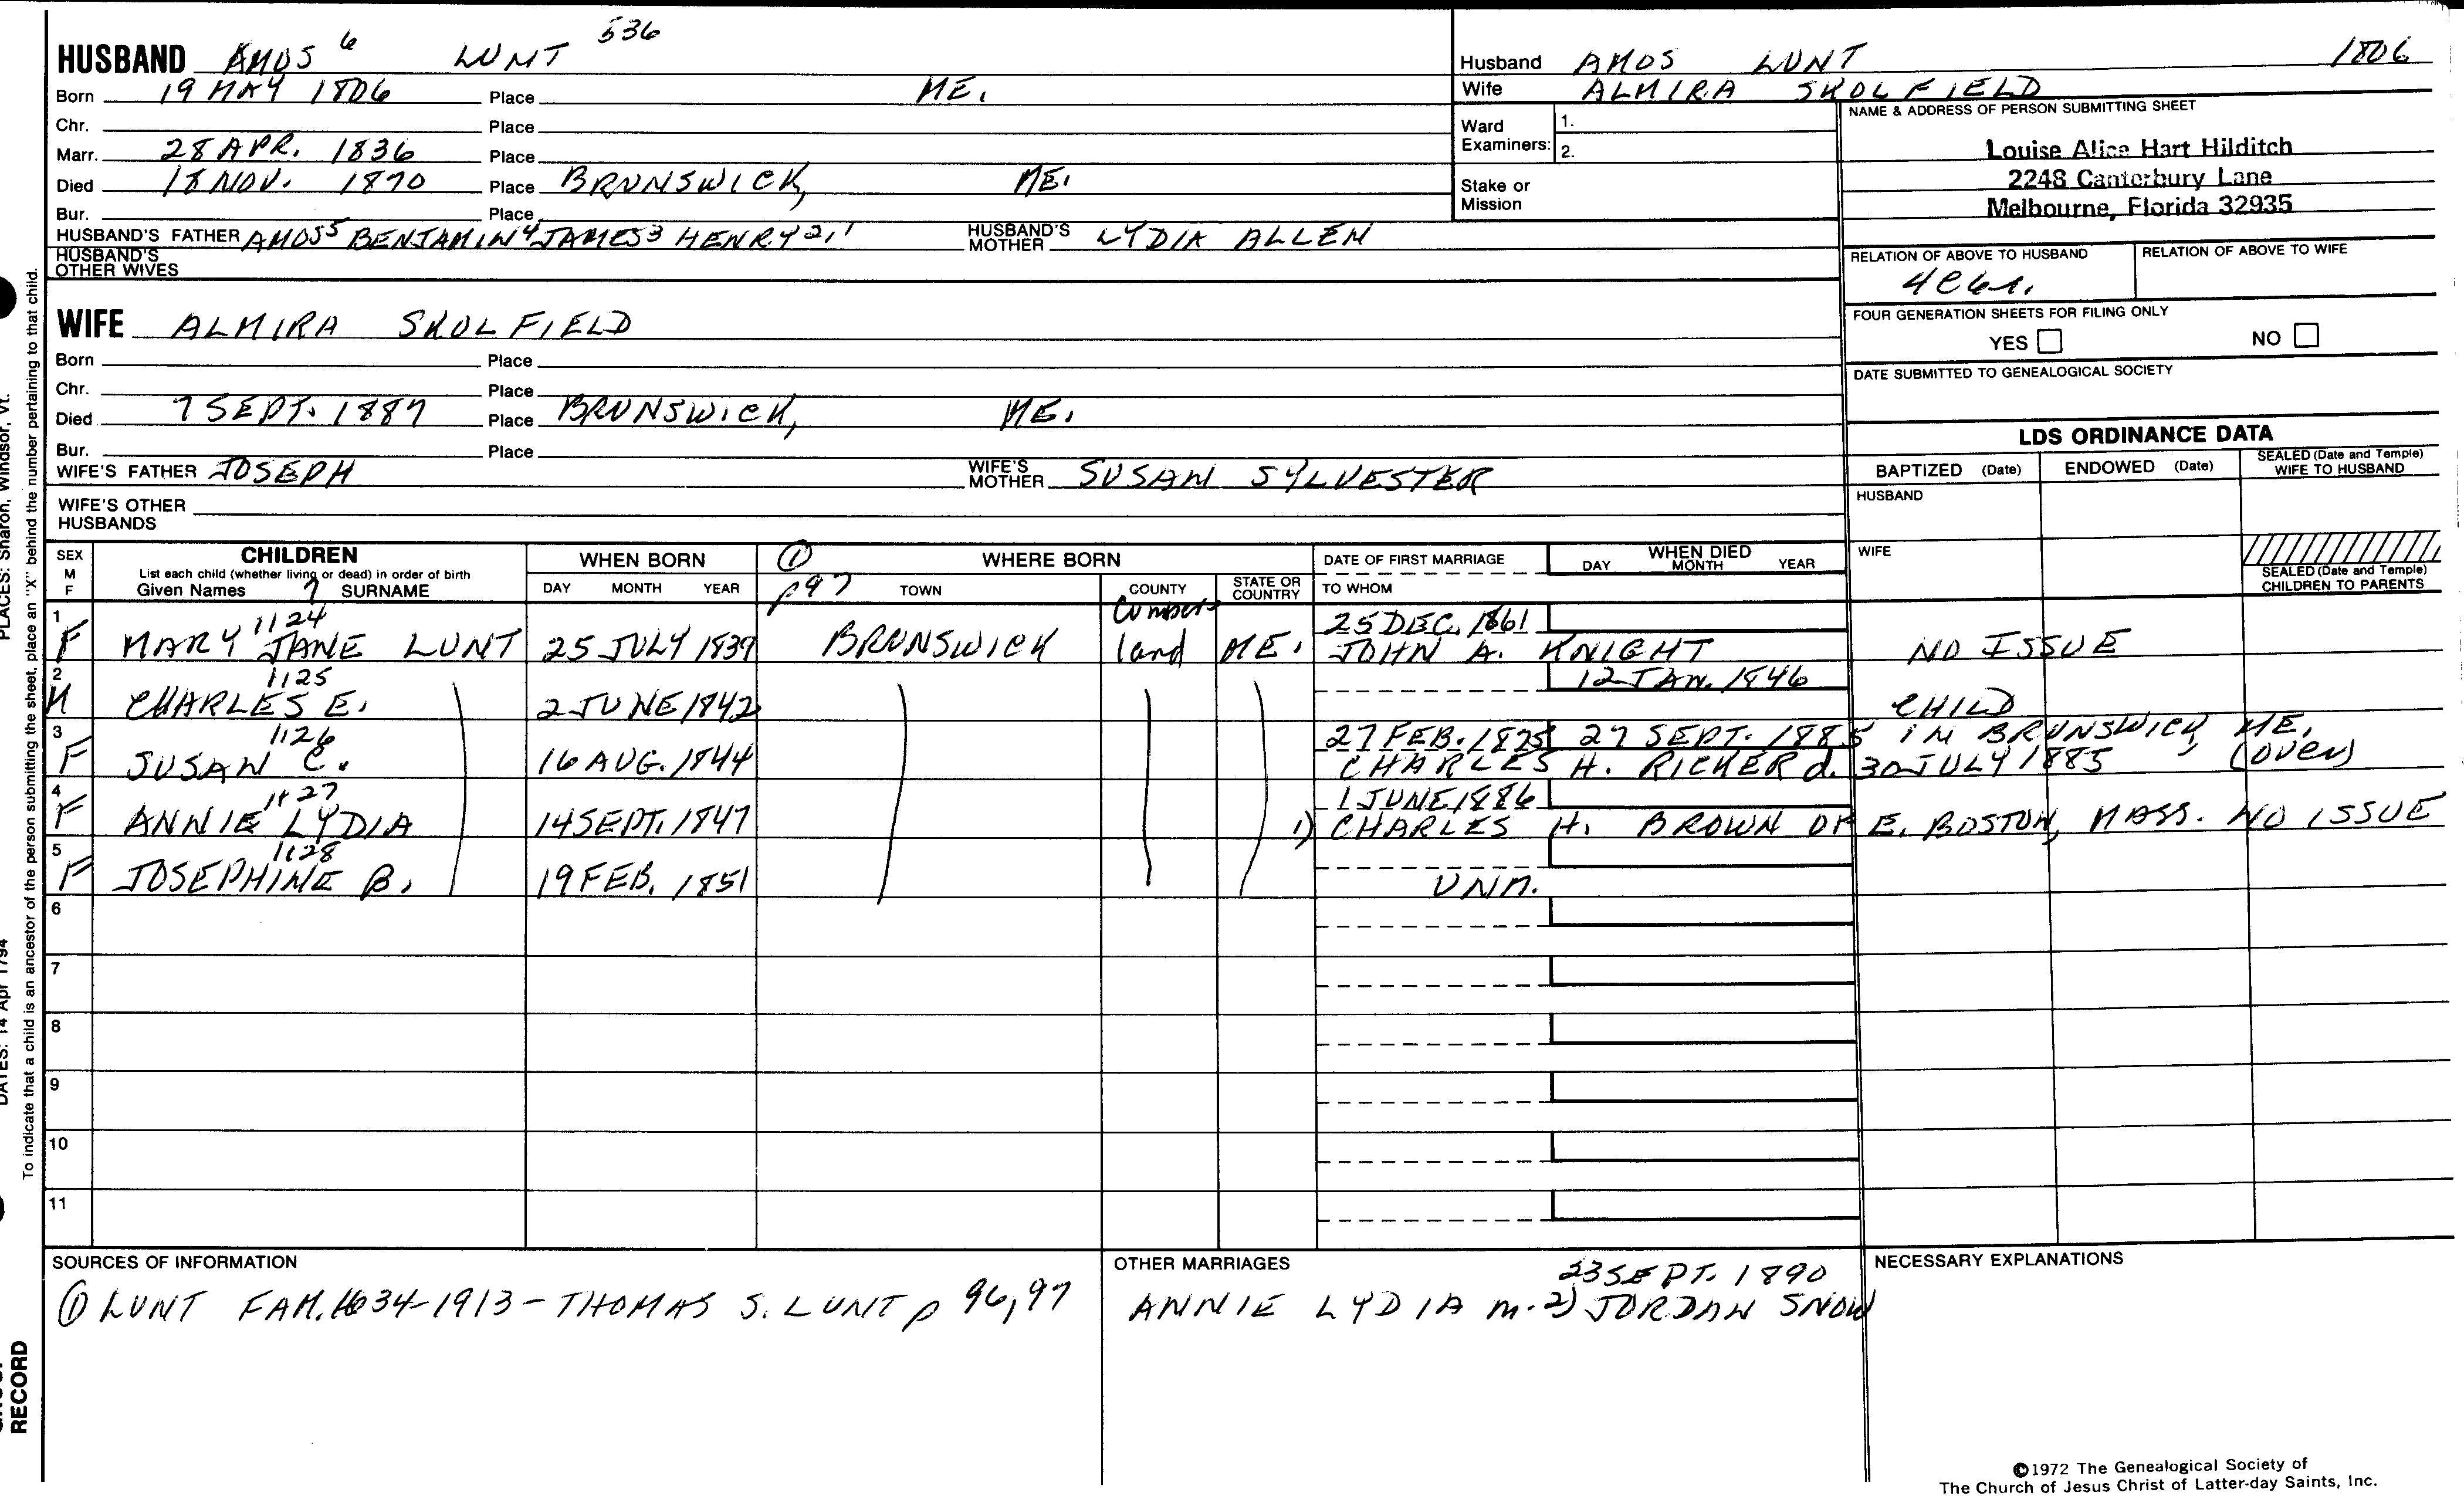 536
HUSBAND AMOS 6 LUNT
Born 19 MAY 1806 Place ME.
Chr. Place
Marr. 28 APR. 1836 Place
Died 18 NOV. 1870 Place BRUNSWICK, ME.
Bur. Place
HUSBAND'S FATHER AMOS5 BENJAMIN4 JAMES3 HENRY2,1 HUSBAND'S MOTHER LYDIA ALLEN
HUSBAND'S OTHER WIVES
Husband AMOS LUNT 1806
Wife ALMIRA SKOLFIELD
Ward Examiners: 1.
2.
Stake or Mission
NAME & ADDRESS OF PERSON SUBMITTING SHEET
Louise Alice Hart Hilditch
2248 Canterbury Lane
Melbourne, Florida 32935
RELATION OF ABOVE TO HUSBAND RELATION OF ABOVE TO WIFE
FOUR GENERATION SHEETS FOR FILING ONLY
YES NO
DATE SUBMITTED TO GENEALOGICAL SOCIETY
WIFE ALMIRA SKOLFIELD
Born Place
Chr. Place
Died 7 SEPT. 1887 Place BRUNSWICK, ME.
Bur. Place
WIFE'S FATHER JOSEPH WIFE'S MOTHER SUSAN SYLVESTER
WIFE'S OTHER HUSBANDS
LDS ORDINANCE DATA
BAPTIZED (Date) ENDOWED (Date) SEALED (Date and Temple) WIFE TO HUSBAND
HUSBAND
WIFE
SEALED (Date and Temple) CHILDREN TO PARENTS
SEX M F
CHILDREN
List each child (whether living or dead) in order of birth
Given Names 7 SURNAME
WHEN BORN
DAY MONTH YEAR
① p97
WHERE BORN
TOWN COUNTY STATE OR COUNTRY
DATE OF FIRST MARRIAGE
TO WHOM
WHEN DIED
DAY MONTH YEAR
1 1124 Cumber- 25 DEC. 1861
F MARY JANE LUNT 25 JULY 1839 BRUNSWICK land ME. JOHN A. KNIGHT NO ISSUE
2 1125 12 JAN. 1846
M CHARLES E. 2 JUNE 1842 CHILD
3 1126 27 FEB. 1875 27 SEPT. 1885 IN BRUNSWICK, ME.
F SUSAN C. 16 AUG. 1844 CHARLES H. RICKER d. 30 JULY 1885 (over)
4 1127 1 JUNE 1886
F ANNIE LYDIA 14 SEPT. 1847 1) CHARLES H. BROWN OF E. BOSTON, MASS. NO ISSUE
5 1128
F JOSEPHINE B. 19 FEB. 1851 UNM.
6
7
8
9
10
11
SOURCES OF INFORMATION
① LUNT FAM. 1634-1913 - THOMAS S. LUNT p 96,97
OTHER MARRIAGES
23 SEPT. 1890
ANNIE LYDIA m. 2) JORDAN SNOW
NECESSARY EXPLANATIONS
©1972 The Genealogical Society of
The Church of Jesus Christ of Latter-day Saints, Inc.
To indicate that a child is an ancestor of the person submitting the sheet, place an "X" behind the number pertaining to that child.
PLACES: Sharon, Windsor, Vt.
DATES: 14 Apr 1794
RECORD